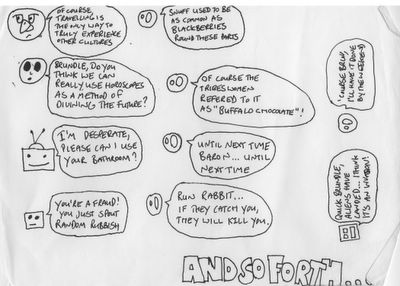 OF COURSE,
TRAVELLING IS
THE ONLY WAY TO
TRULY EXPERIENCE
OTHER CULTURES
SNUFF USED TO BE
AS COMMON AS
BLACKBERRIES
ROUND THESE PARTS
BRUNDLE, DO YOU
THINK WE CAN
REALLY USE HOROSCOPES
AS A METHOD OF
DIVINING THE FUTURE?
OF COURSE THE
TRIBESWOMEN
REFERED TO IT
AS "BUFFALO CHOCOLATE"!
'COURSE BRUV,
I'LL HAVE IT DONE
BY THE WEEKEND
I'M DESPERATE,
PLEASE CAN I USE
YOUR BATHROOM?
UNTIL NEXT TIME
BARON... UNTIL
NEXT TIME
YOU'RE A FRAUD!
YOU JUST SPOUT
RANDOM RUBBISH
RUN RABBIT...
IF THEY CATCH YOU,
THEY WILL KILL YOU.
QUICK BRUNDLE,
ALIENS HAVE
LANDED... I THINK
IT'S AN INVASION!
AND SO FORTH...